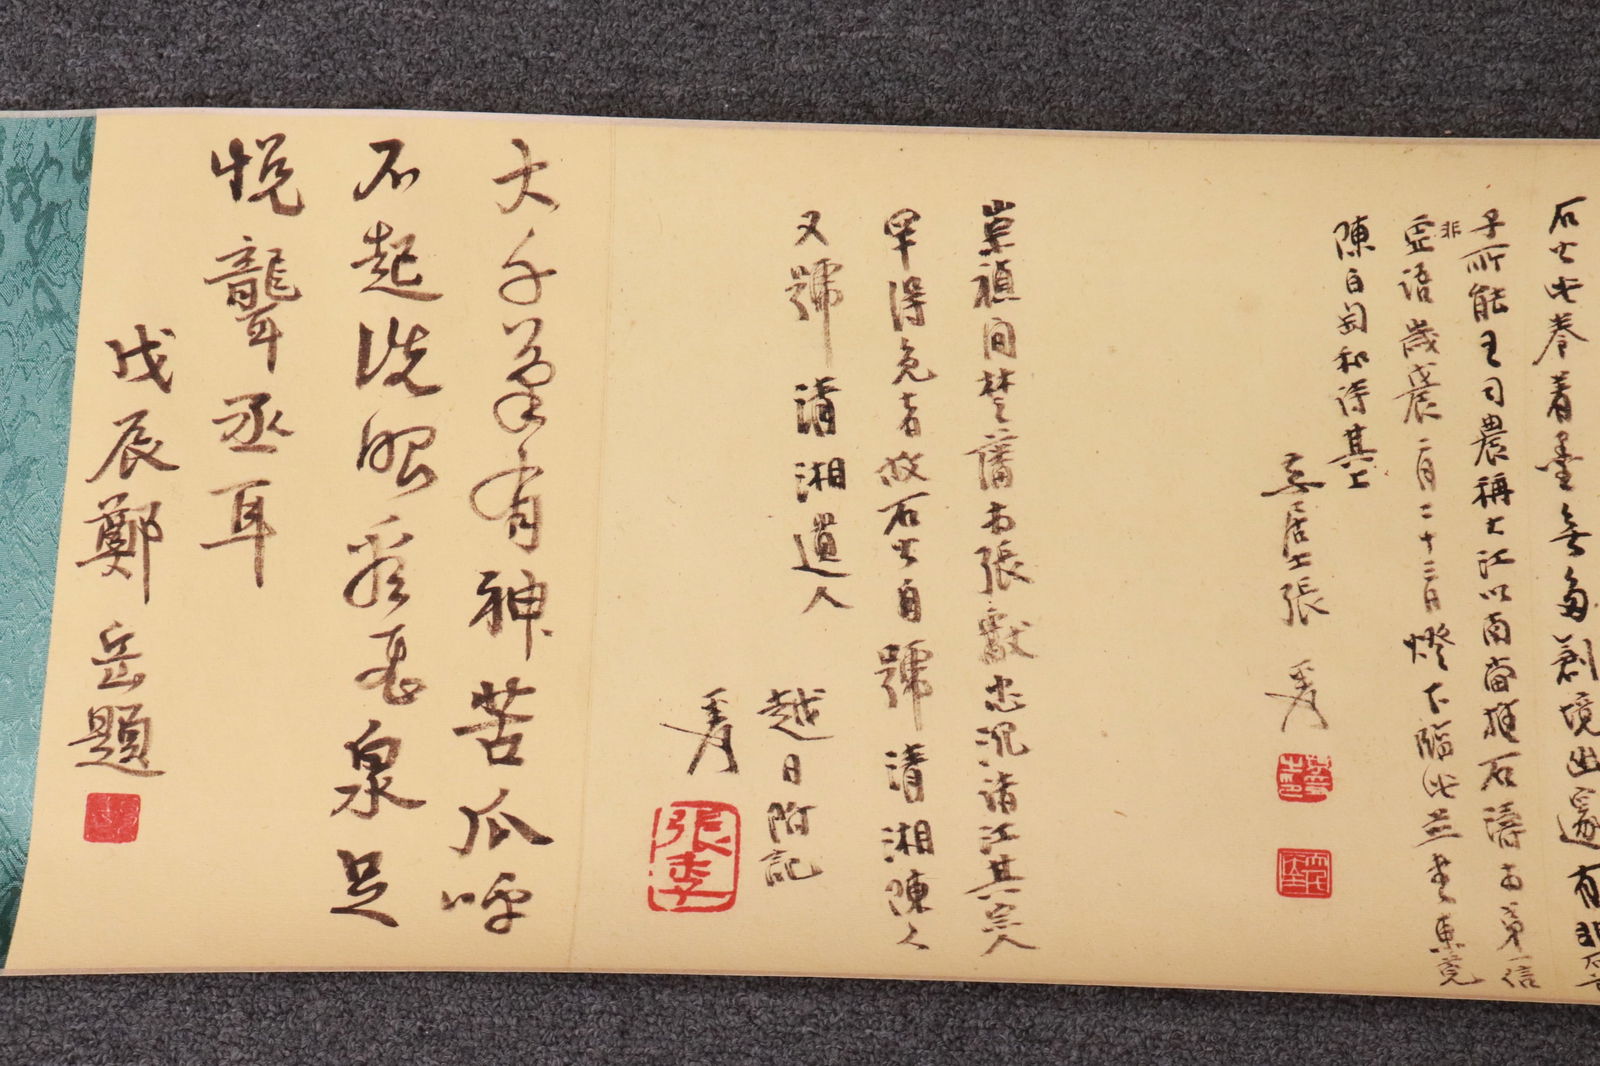 石公此卷着墨無多剏境幽邃有非
子所能王司農稱大江以南當推石濤为第一信
非
虛語歲戊辰二月二十三日燈下臨此並書東莞
陳白匋和詩其上
居士張爰
崇禎間楚藩为張獻忠沉諸江其宗人
罕得免者故石公自號清湘陳人
又號清湘道人
越日附記
爰
張季
大千筆有神苦瓜呼
不起洗眼看
泉足
悅聾丞耳
戊辰鄭岳題